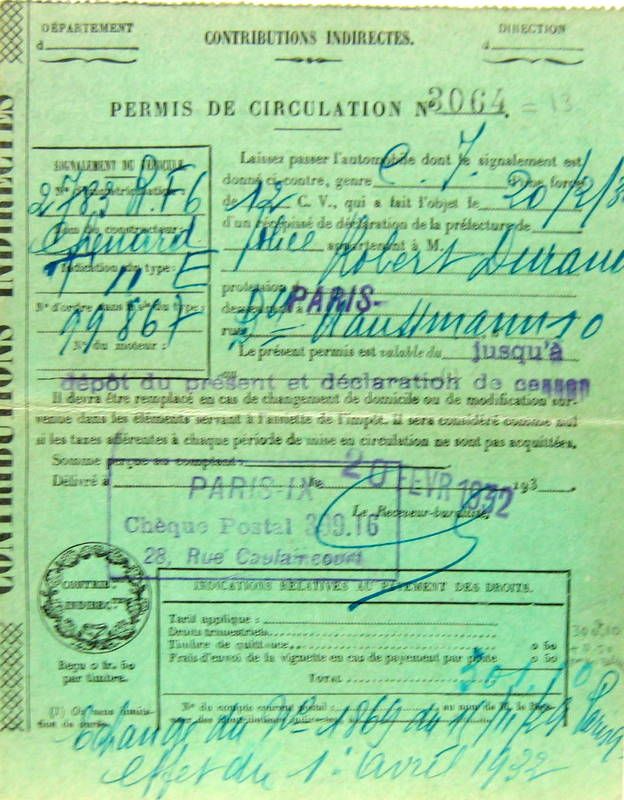 DÉPARTEMENT
d
CONTRIBUTIONS INDIRECTES.
DIRECTION
d
PERMIS DE CIRCULATION N° 3064 = 13
CONTRIBUTIONS INDIRECTES
SIGNALEMENT DU VÉHICULE
N° d'immatriculation:
2783 R.F6
Nom du constructeur:
Chenard
Indication du type:
T 11 E
N° d'ordre dans la série du type:
99867
N° du moteur:
Laissez passer l'automobile dont le signalement est
donné ci-contre, genre C. I. d'une force
de 12 C. V., qui a fait l'objet le 20/2/3
d'un récépissé de déclaration de la préfecture de
police appartenant à M. Robert Duran
profession
demeurant à PARIS-
rue Bd Haussmann 10
Le présent permis est valable du jusqu'à
dépôt du présent et déclaration de cesser
Il devra être remplacé en cas de changement de domicile ou de modification sur-
venue dans les éléments servant à l'assiette de l'impôt. Il sera considéré comme nul
si les taxes afférentes à chaque période de mise en circulation ne sont pas acquittées.
Somme perçue au comptant:
Délivré à le 20 FEVR 1932 193
PARIS-IX
Le Receveur-buraliste,
Chèque Postal 399.16
28, Rue Caulaincourt
CONTRIB.
INDIRECT.
Reçu 0 fr. 50
par timbre.
INDICATIONS RELATIVES AU PAYEMENT DES DROITS.
Tarif appliqué:
Droits trimestriels
Timbre de quittance 0 50
Frais d'envoi de la vignette en cas de payement par poste 0 50
TOTAL
N° du compte courant postal:
Échange du N°
effet du 1er avril 1932